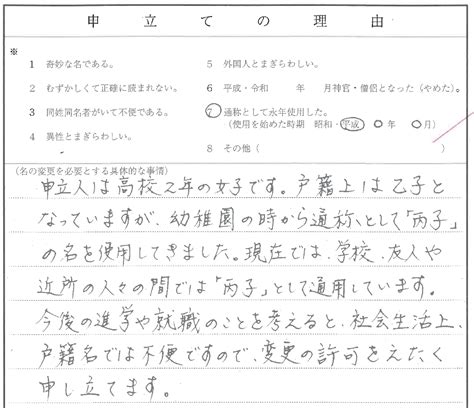 申立ての理由
※
1 奇妙な名である。
2 むずかしくて正確に読まれない。
3 同姓同名者がいて不便である。
4 異性とまぎらわしい。
5 外国人とまぎらわしい。
6 平成・令和 年 月神官・僧侶となった(やめた)。
⑦ 通称として永年使用した。
(使用を始めた時期 昭和・平成 ○年 ○月)
8 その他( )
(名の変更を必要とする具体的な事情)
申立人は高校2年の女子です。戸籍上は乙子と
なっていますが、幼稚園の時から通称として「丙子」
の名を使用してきました。現在では、学校、友人や
近所の人々の間では「丙子」として通用しています。
今後の進学や就職のことを考えると、社会生活上、
戸籍名では不便ですので、変更の許可をえたく
申し立てます。